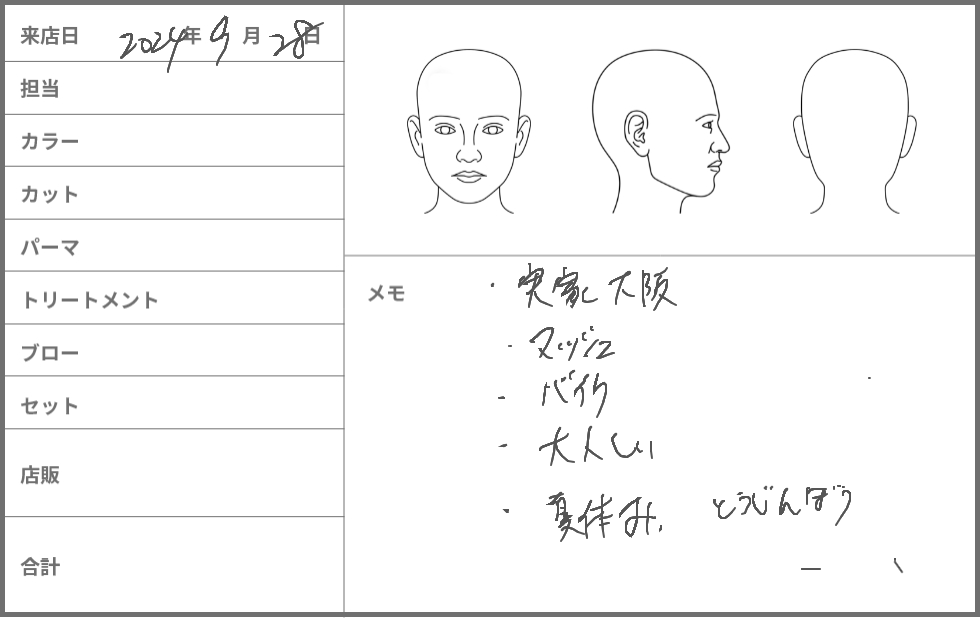 来店日 2024年9月28日
担当
カラー
カット
パーマ
トリートメント
ブロー
セット
店販
合計
メモ
・実家 大阪
・マッシュ
・バイク
・大人しい
・夏休み、とうじんぼう